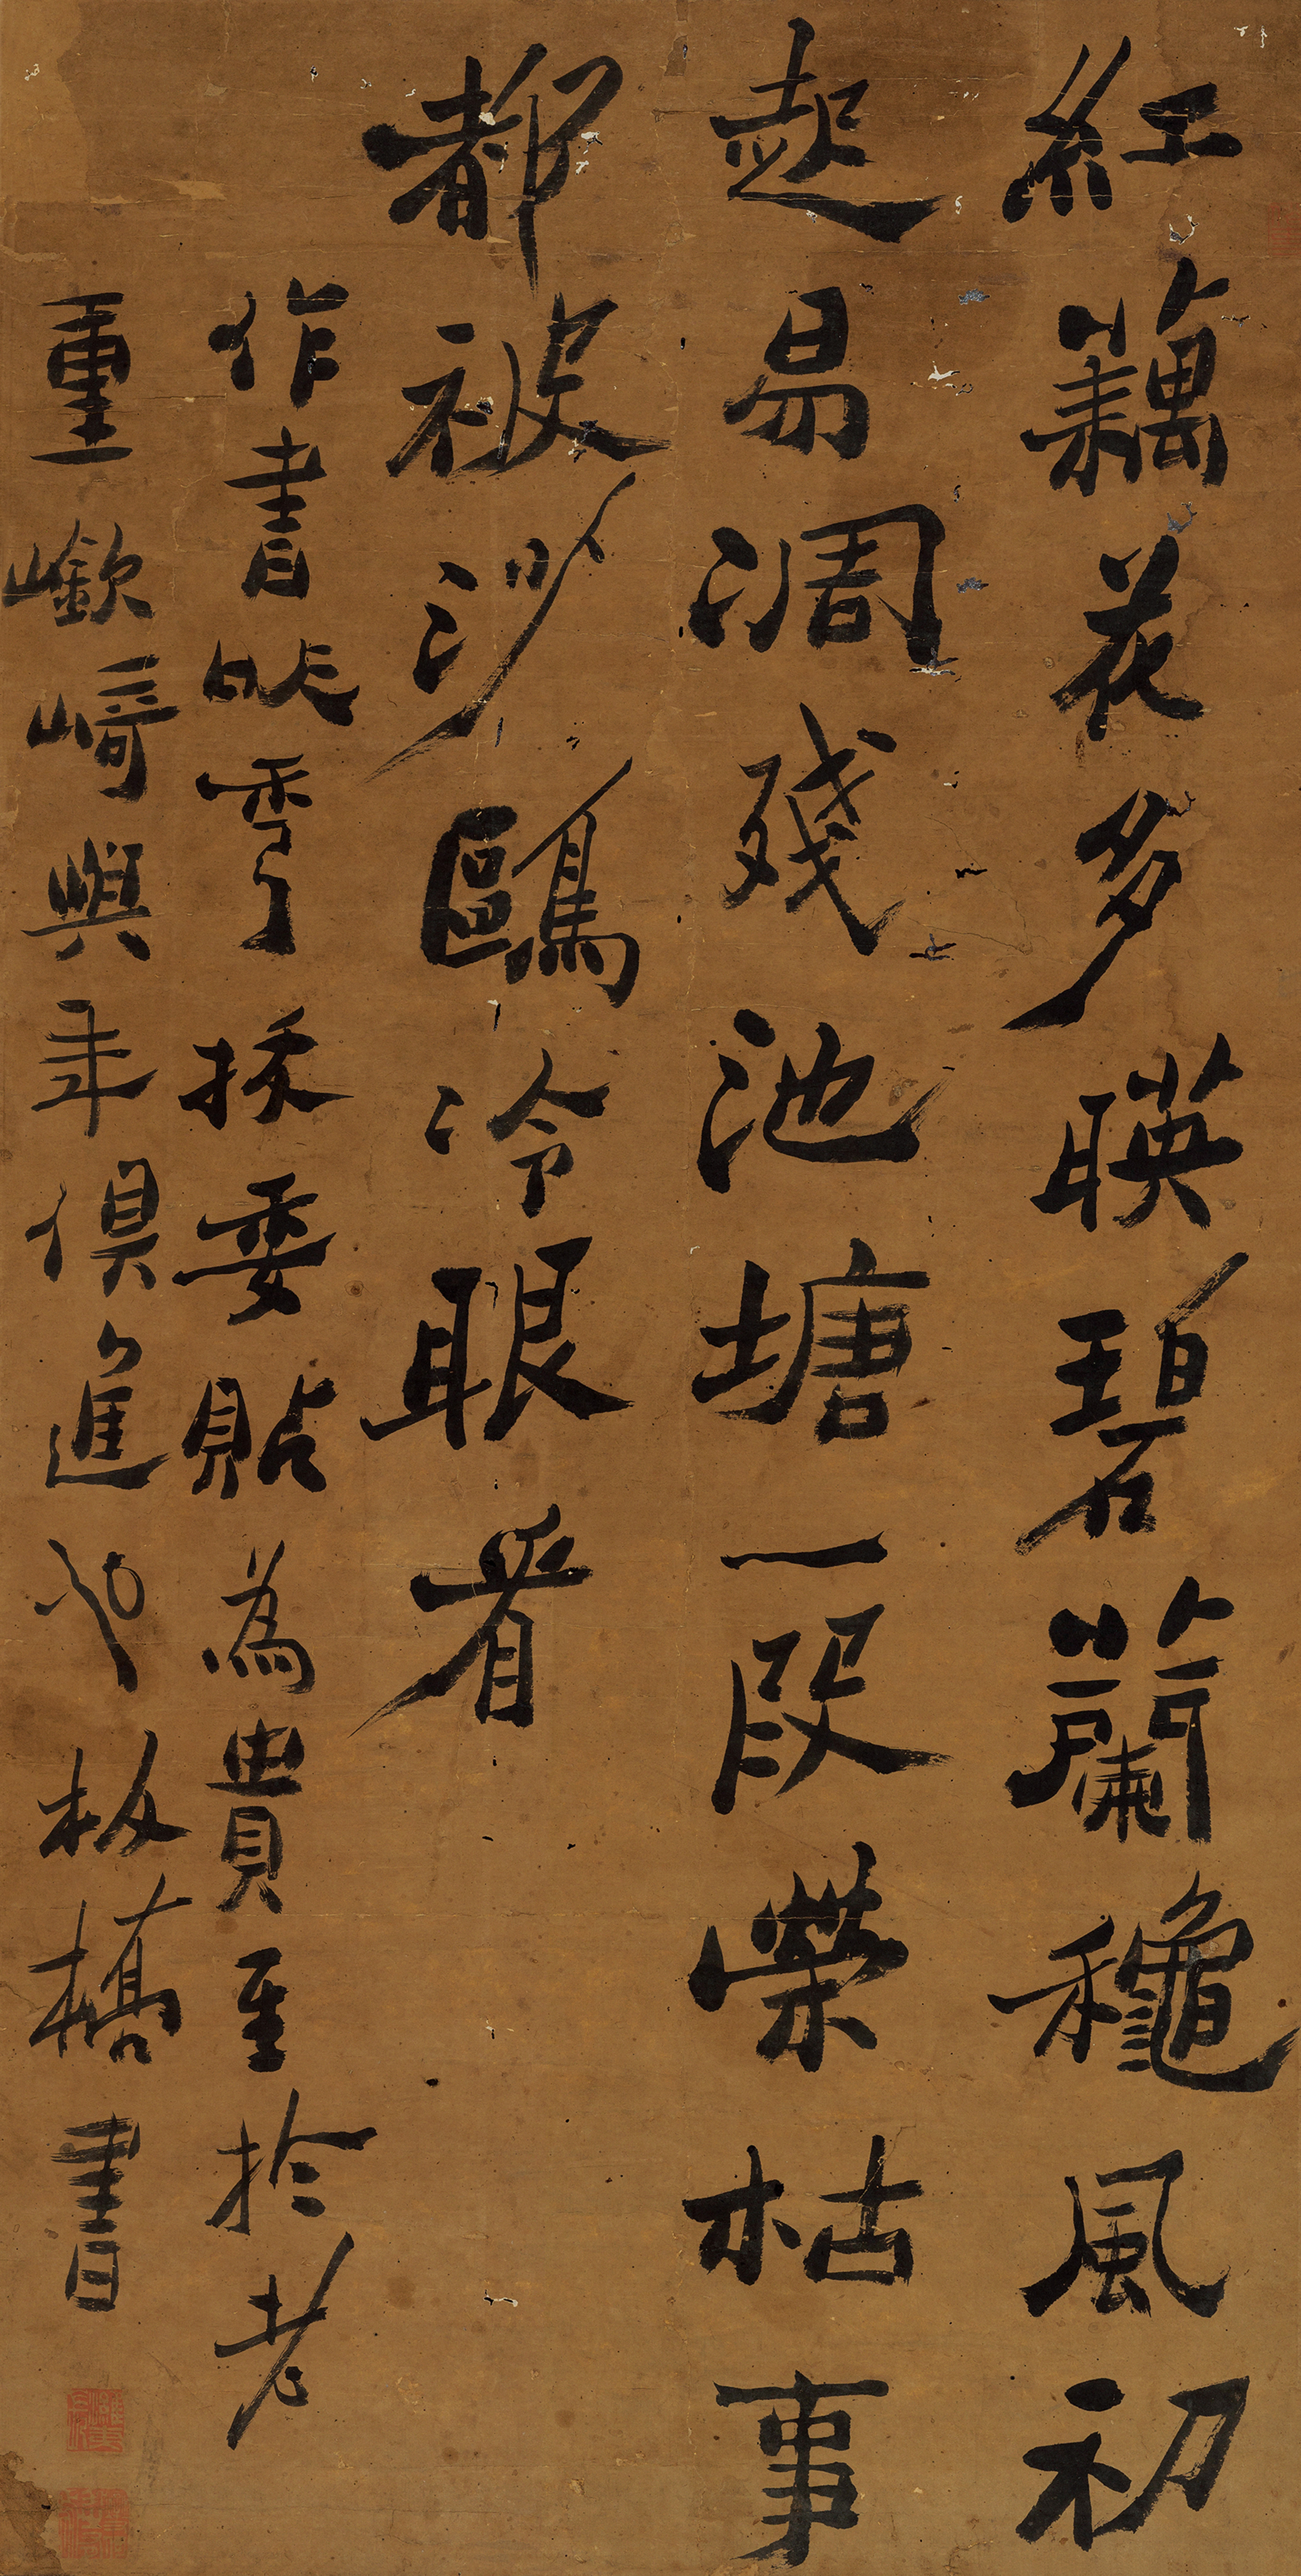 紅藕花多映碧蘭穐風初
起易凋殘池塘一段榮枯事
都被沙鷗冷眼看
作書委貼為貴至於老
重嶔崎與年俱進也板橋書